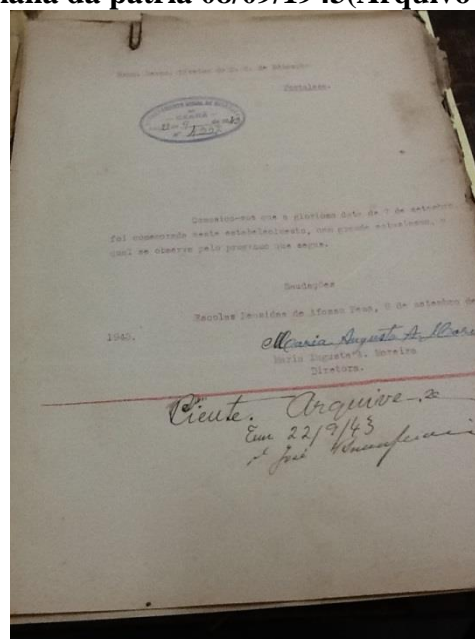 da pátria 08/09/1943(Arquivo
Fortaleza.
CEARÁ
Comunico-vos que a gloriosa data de 7 de setembro
foi comemorada neste estabelecimento, com grande entusiasmo, o
qual se observa pelo programa que segue.
Saudações
Escolas Reunidas de Afonso Pena, 8 de setembro de
1943.
Maria Augusta A.
Maria Augusta A. Moreira
Diretora.
Ciente. Arquive-se
Em 22/9/43
José